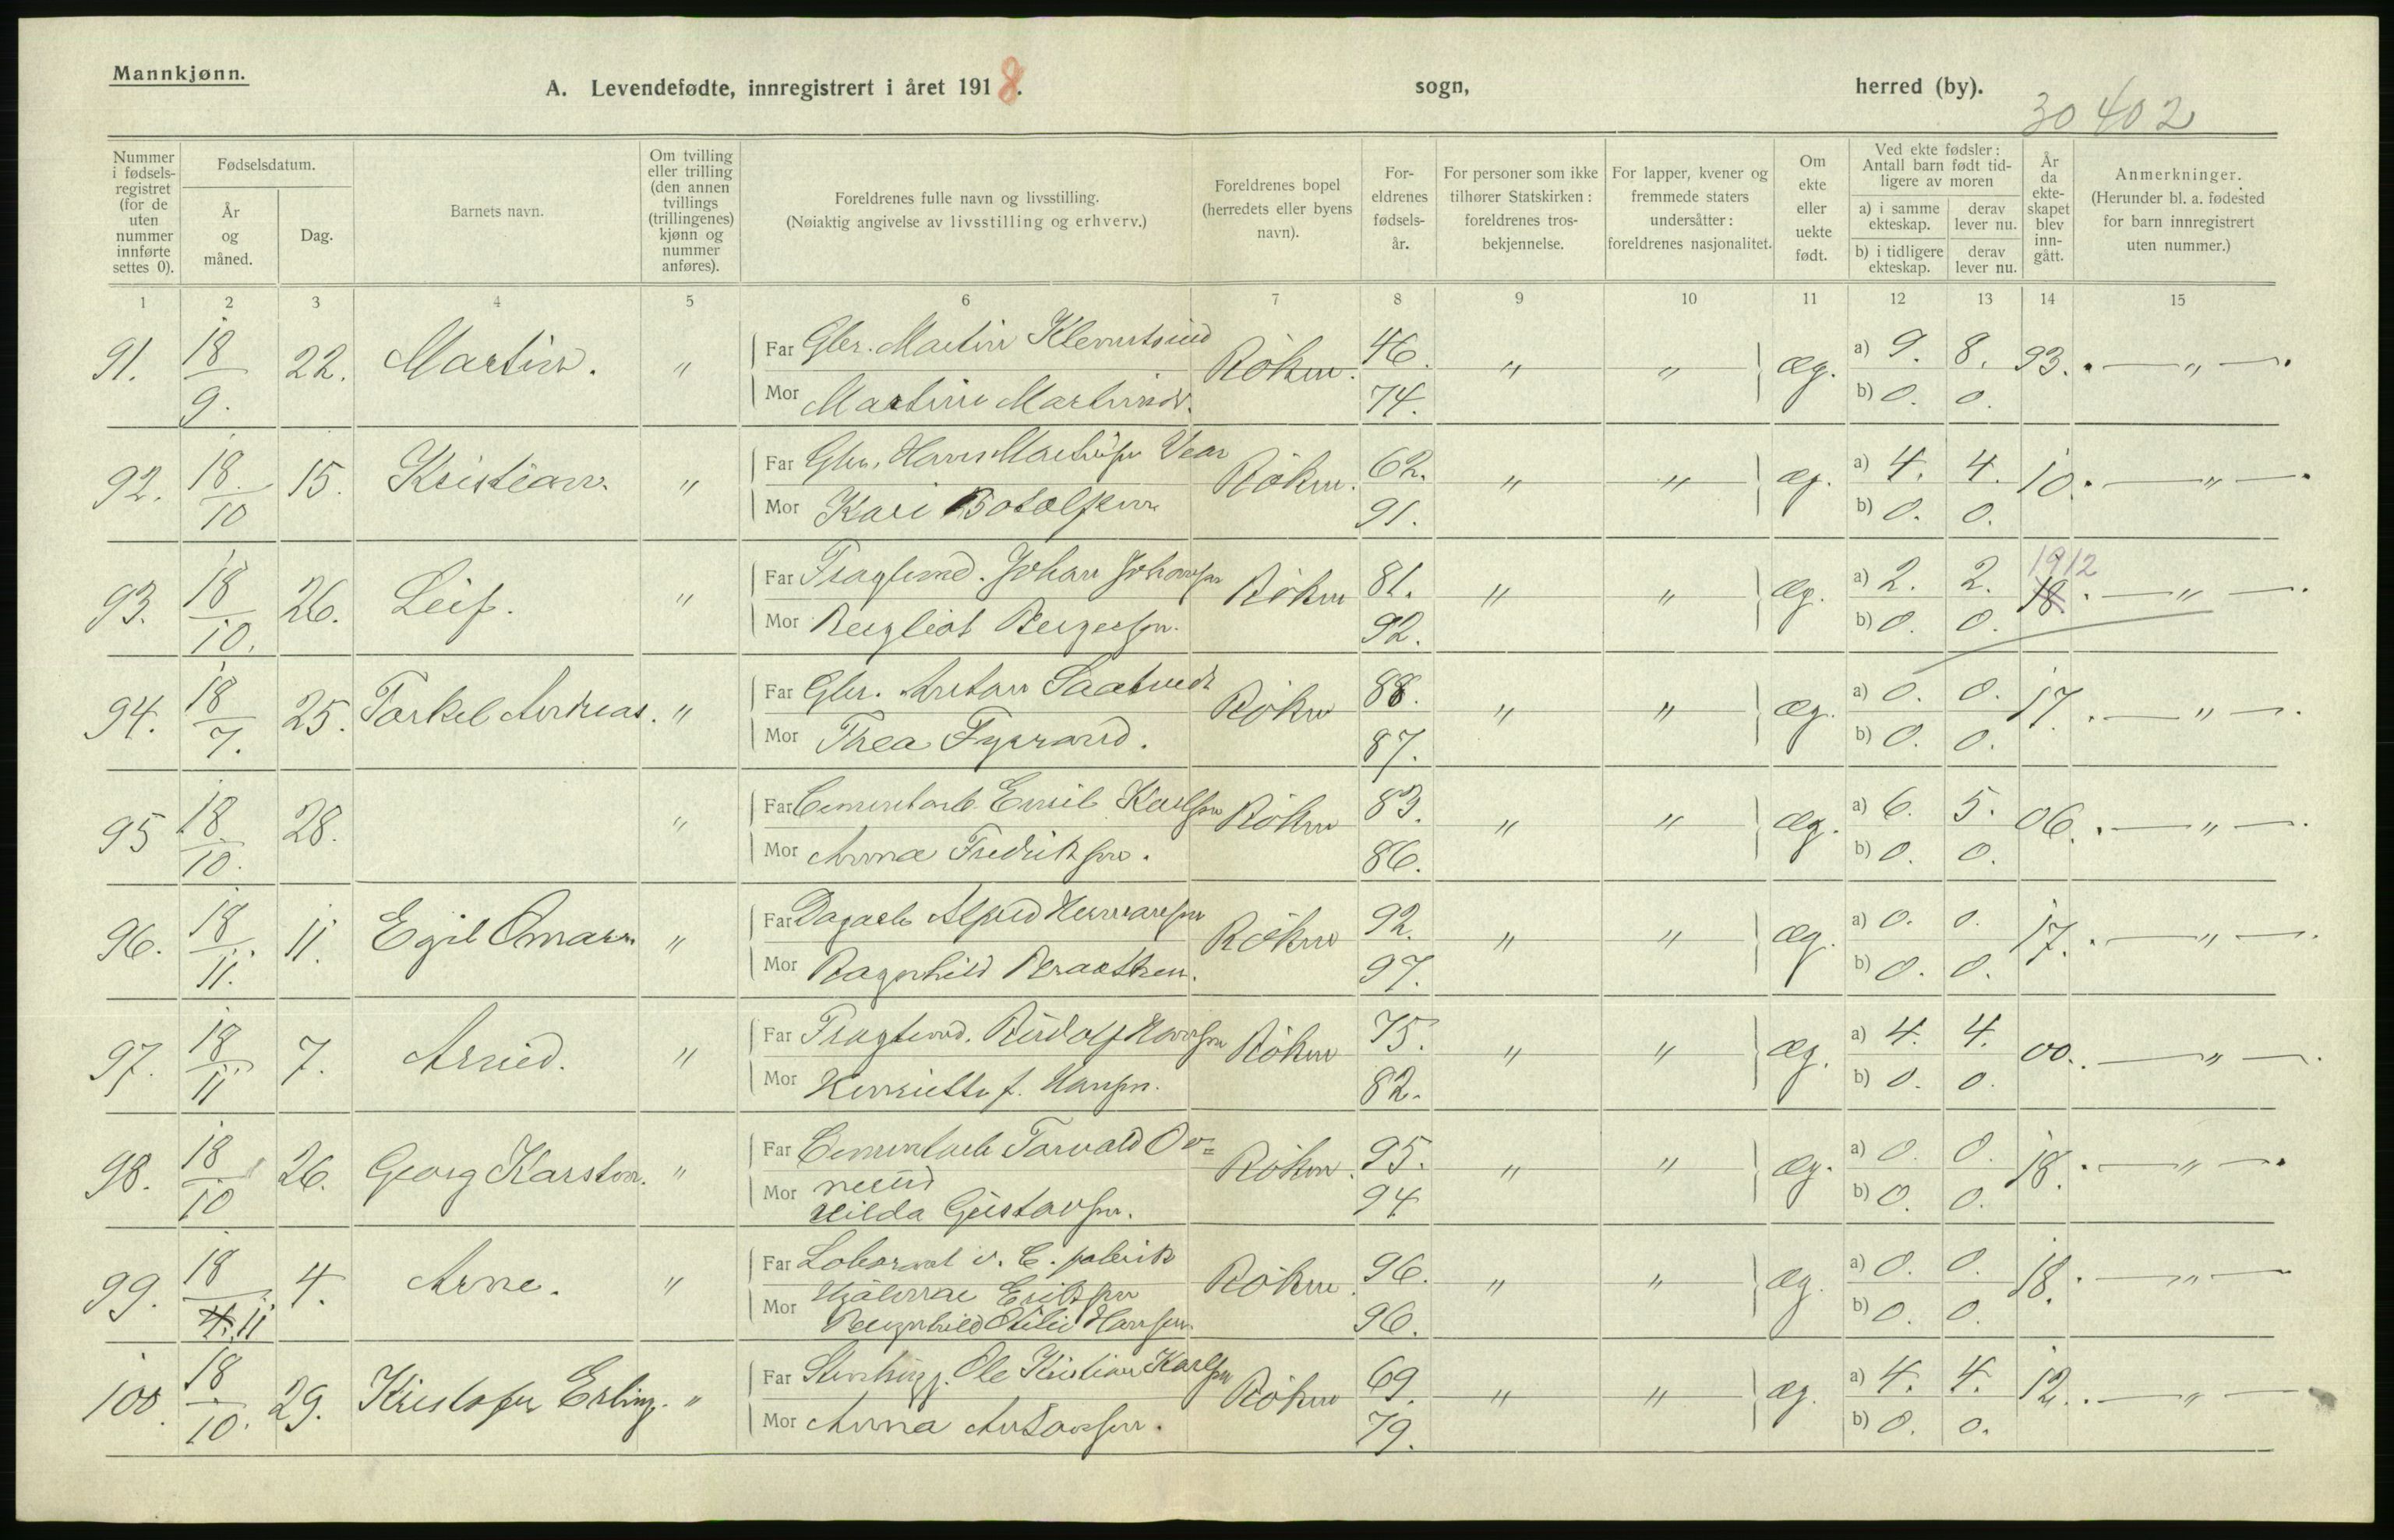 Mannkjønn.
A. Levendefødte, innregistrert i året 1918. sogn, herred (by).
30402
Nummer i fødsels-registret (for de uten nummer innførte settes 0).
Fødselsdatum.
År og måned.
Dag.
Barnets navn.
Om tvilling eller trilling (den annen tvillings (trillingenes) kjønn og nummer anføres).
Foreldrenes fulle navn og livsstilling.
(Nøiaktig angivelse av livsstilling og erhverv.)
Foreldrenes bopel (herredets eller byens navn).
For-eldrenes fødsels-år.
For personer som ikke tilhører Statskirken: foreldrenes tros-bekjennelse.
For lapper, kvener og fremmede staters undersåtter: foreldrenes nasjonalitet.
Om ekte eller uekte født.
Ved ekte fødsler: Antall barn født tid-ligere av moren
a) i samme ekteskap. derav lever nu.
b) i tidligere ekteskap. derav lever nu.
År da ekte-skapet blev inn-gått.
Anmerkninger.
(Herunder bl. a. fødested for barn innregistrert uten nummer.)
1 2 3 4 5 6 7 8 9 10 11 12 13 14 15
91. 18/9. 22. Martin. " Far Gbr. Martin Klemetsrud Röken. 46. " " æg. a) 9. 8. 93. "
Mor Martine Martinsdr. 74. b) 0. 0.
92. 18/10 15. Kristian. " Far Gbr. Hans Mathisen Vear Röken. 62. " " æg. a) 4. 4. 10. "
Mor Kari Botolfsen 91. b) 0. 0.
93. 18/10. 26. Leif. " Far Johan Johansen Röken 81. " " æg. a) 2. 2. 1912 18. "
Mor Bergliot Bergersen. 92. b) 0. 0.
94. 18/7. 25. Torkel Andreas. " Far Gbr. Anton Saatvedt Röken 88. " " æg. a) 0. 0. 17. "
Mor Thea Fyrrand. 87. b) 0. 0.
95 18/10. 28. " Far Cementarb. Emil Karlsen Röken 83. " " æg. a) 6. 5. 06. "
Mor Anna Fredriksen. 86. b) 0. 0.
96. 18/11. 11. Egil Omar " Far Dagarb. Alfred Hermansen Röken 92. " " æg. a) 0. 0. 17. "
Mor Ragnhild Braathen. 97. b) 0. 0.
97. 18/11 7. Arvid. " Far Rudolf Hansen Röken 75. " " æg. a) 4. 4. 00. "
Mor Henriette f. Hansen. 82. b) 0. 0.
98. 18/10 26. Georg Karsten. " Far Cementarb. Torvald Ov= Röken. 95. " " æg. a) 0. 0. 18. "
nerud
Mor Hilda Gustavsen. 94 b) 0. 0.
99. 18/4. 11. 4. Arne. " Far v. C. fabrik Röken. 96. " " æg. a) 0. 0. 18. "
Hjalmar Eriksen
Mor Ragnhild Otilie Hansen. 96. b) 0. 0.
100. 18/10. 29. Kristofer Erling. " Far Stenhugg. Ole Kristian Karlsen Röken 69. " " æg. a) 4. 4. 12. "
Mor Anna Antonsen. 79. b) 0. 0.